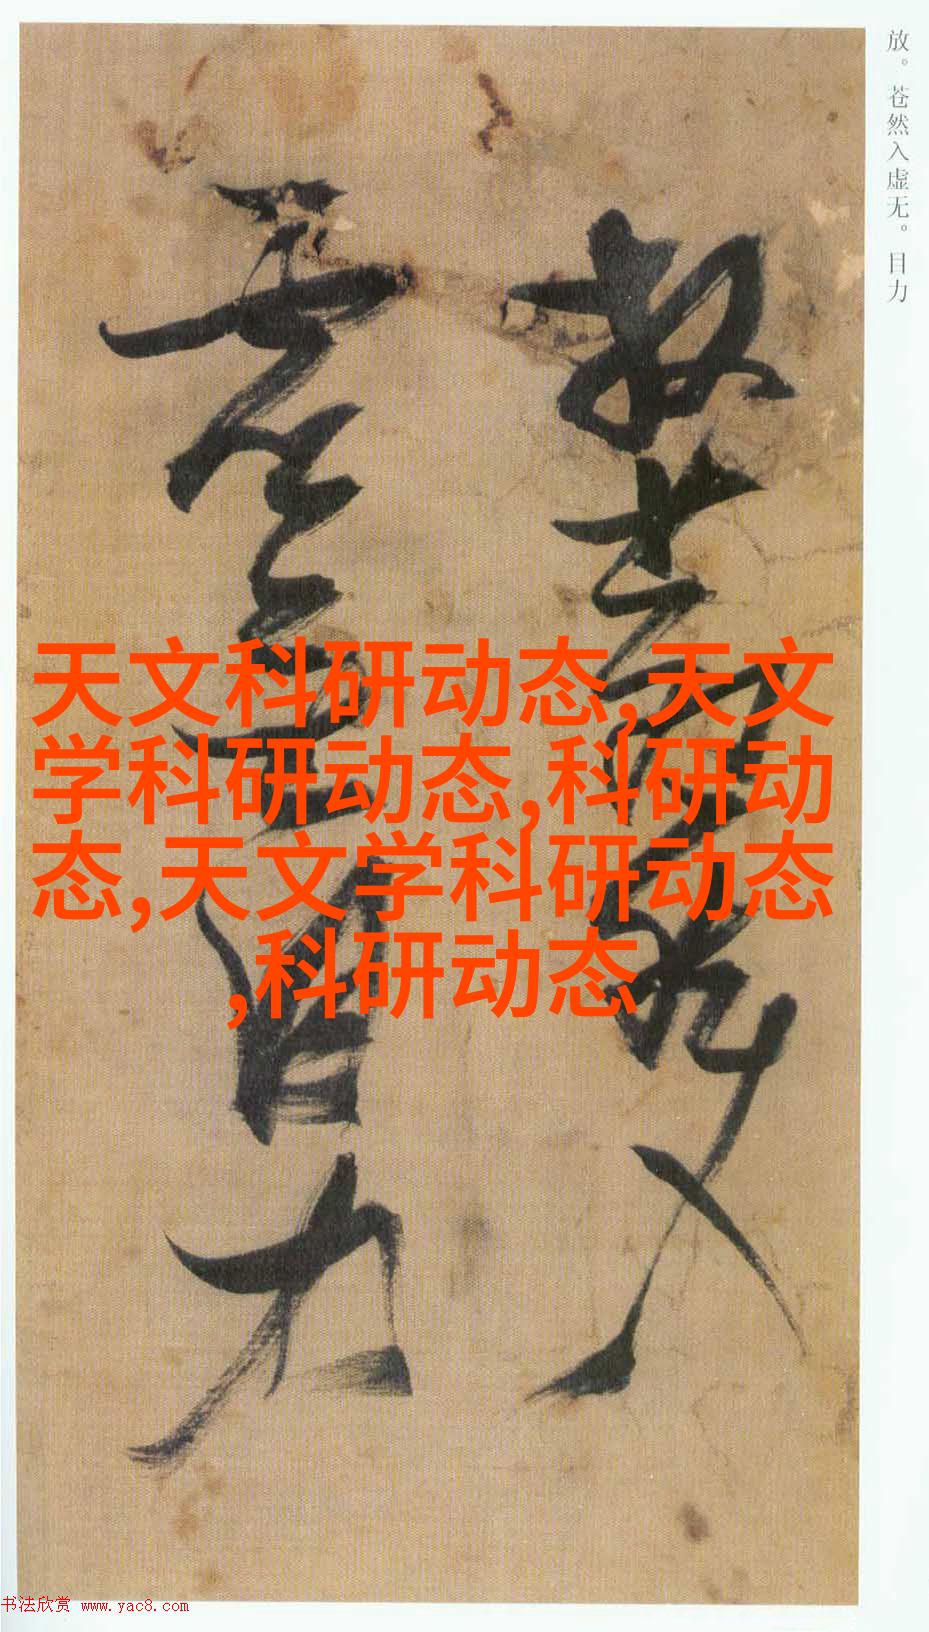 放。苍然入虚无。目力
放苍然入
虚无目力
天文科研动态,天文
学科研动态,科研动
态,天文学科研动态
,科研动态
书法欣赏 www.yac8.com